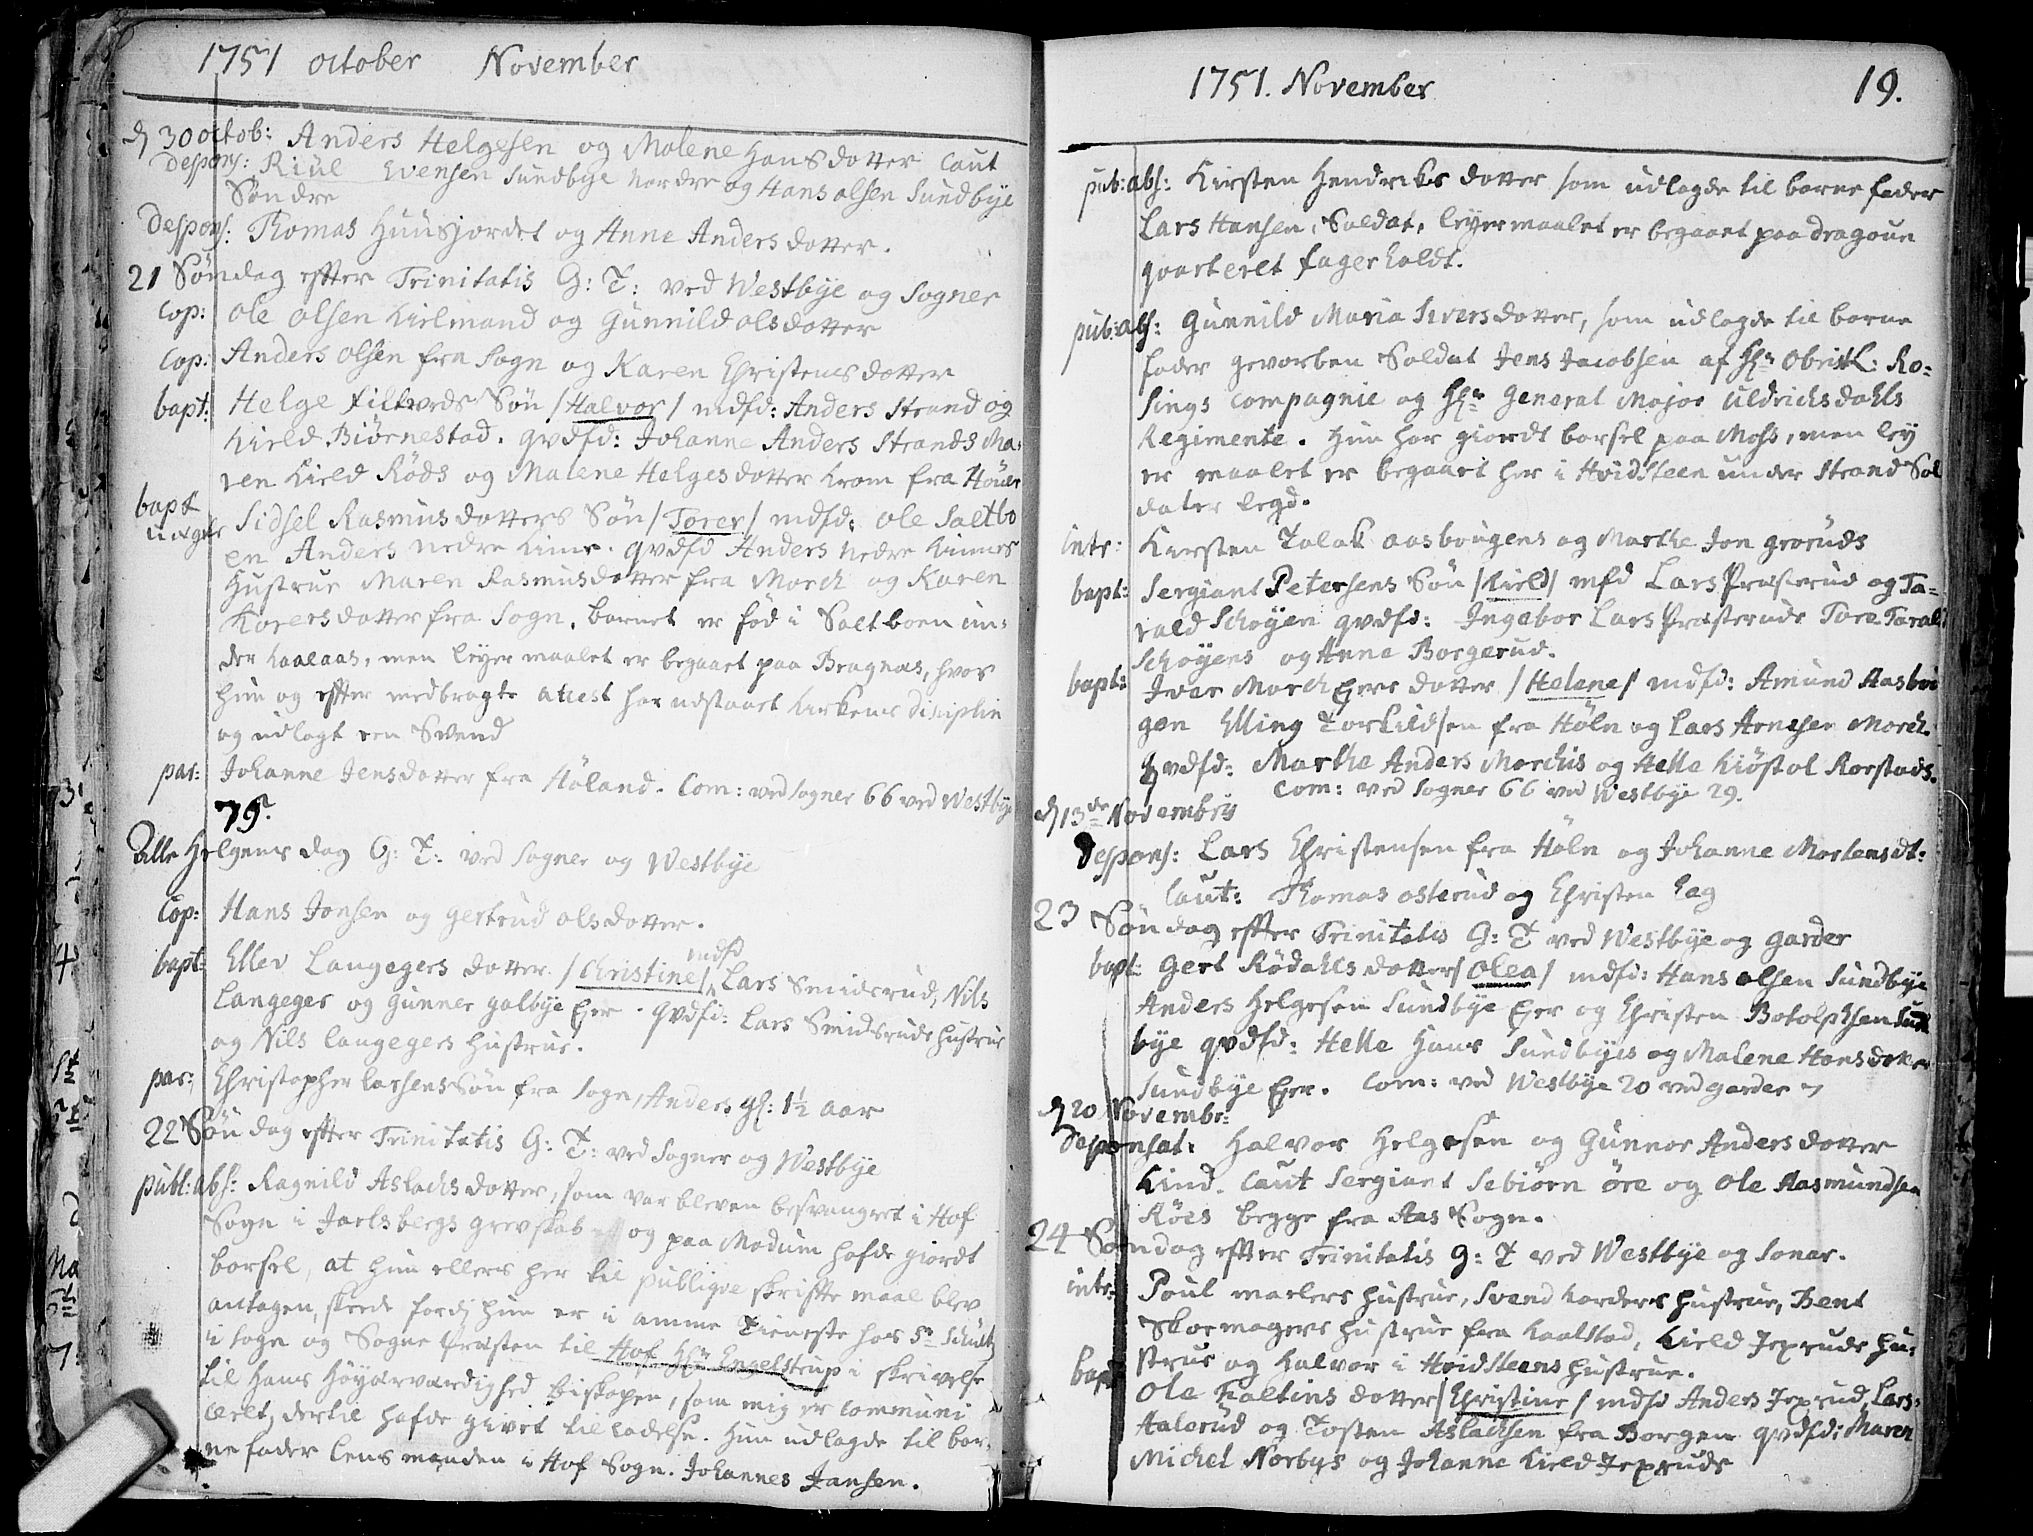 1751 october November
d 30 octob: Anders Helgesen og Malene Hansdotter Caut
Despons: Riul Evensen Sundbye Nordre og Hans olsen Sundbye
Søndre
Despons: Thomas Huusjordet og Anne Anders dotter.
21 Søndag effter Trinitatis G: T: ved Westbye og Sogner
Cop: Ole olsen Kielmand og Gunnild olsdotter
Cop: Anders olsen fra Sogn og Karen Christensdotter
bapt: Helge Søn / Halvor / mdfd: Anders Strand og
Kield Biørnestad. qvdfd: Johanne Anders Strands Ma-
ren Kield Røds og Malene Helgesdotter Krom fra
bapt Sidsel Rasmusdotters Søn / Torer / mdfd: Ole Saltbo
en Anders Nedre Kinn. qvdfd Anders Nedre Kinnes
Hustrue Maren Rasmusdotter fra Morch og Karen
Korersdotter fra Sogn, barnet er fød i Saltboen un-
der Kaalaas, men leyermaalet er begaaet paa Bragnæs, hvor
hun og effter medbragte attest har udstaaet Kirkens disciplin
og udlagt en Svend
par: Johanne Jensdotter fra Høland. Com: ved Sogner 66 ved Westbye
79.
Alle Helgens dag G: T: ved Sogner og Westbye
Cop: Hans Jonsen og Gertrud olsdotter.
mdfd
bapt: Ellev Langegers dotter / Christine / Lars Smidsrud, Nils
Langeger og Gunner Galbye Ejer. qvdfd: Lars Smidsruds hustrue
og Nils Langegers hustrue.
par: Christopher Larsens Søn fra Sogn, Anders gl: 1½ aar
22 Søndag effter Trinitatis G: T: ved Sogner og Westbye
publ: abs: Ragnild Aslachsdotter, som var bleven besvangret i Hof
Sogn i Jarlsbergs grevskab og paa Modum hafde giordt
barsel, at hun ellers her til publiqve skriftemaal blev
antagen, skede fordj hun er i amme Tieneste hos Sr
i Sogn og Sogne Præsten til Hof Hr Engelstrup i skrivelse
til Hans Høyærværdighed biskopen, som mig er communi
ceret, dertil hafde givet tilladelse. Hun udlagde til bar-
nefader Lensmanden i Hof Sogn. Johannes Jansen.
1751. November 19.
pub: abs: Kirsten Hendrichs dotter som udlagde til barnefader
Lars Hansen, Soldat, leyermaalet er begaaet paa Dragoun
qvarteret Fagerholdt.
pub: abs: Gunnild Maria Iversdotter, som udlagde til barne
fader gevorben Soldat Jens Jacobsen af Hr Obristl: Ro-
sings Compagnie og Hr General Major Uldrichsdahls
Regimente. Hun har giordt barsel paa Moss, men ley
er maalet er begaaet her i Hvidsteen under Strand Sol
dater Legd.
intr: Kirsten Talak Aasbougens og Marthe Jon Groruds
bapt: Sergiant Petersens Søn / Kield / mfd Lars Præsterud og Ta-
rald Schøyen qvdfd: Ingebor Lars Præsteruds Tore Tarald
Schøyens og Anne Borgerud.
bapt: Iver Morch Ejers dotter / Helene / mdfd: Amund Aasbou
gen Elling Torkildsen fra Høln og Lars Arnesen Morch.
qvdfd: Marthe Anders Morchis og Helle Kiøstol Rorstads.
Com: ved Sogner 66 ved Westbye 29.
d 13de Novembris
Despons: Lars Christensen fra Høln og Johanne Mortensdt:
Caut: Thomas Osterud og Christen Lag
23 Søndag effter Trinitatis G: T ved Westbye og Garder
bapt: Gert Rødahls dotter / Olea / mdfd: Hans olsen Sundbye
Anders Helgesen Sundbye Ejer og Christen Botolphsen Sund
bye qvdfd: Helle Hans Sundbyes og Malene Hansdotter
Sundbye Ejer. Com: ved Westbye 20 ved Garder 7
d 20 Novembr:
Desponsat: Halvor Helgesen og Gunnor Andersdotter
Kind. Caut Sergiant Sebiørn Øre og Ole Rasmundsen
Røes begge fra Aas Sogn.
24 Søndag effter Trinitatis G: T ved Westbye og Soner.
intr: Poul malers hustrue, Svend Korders hustrue, Bent
Skoemagers hustrue fra Kaalstad, Kield Jepruds hu-
strue og Halvor i Hvidsteens hustrue.
bapt Ole Faltins dotter / Christine / mdfd Anders Jeprud, Lars
Halorud og Tosten Aslachsen fra Borgen qvdfd: Maren
Michel Norbys og Johanne Kield Jepruds